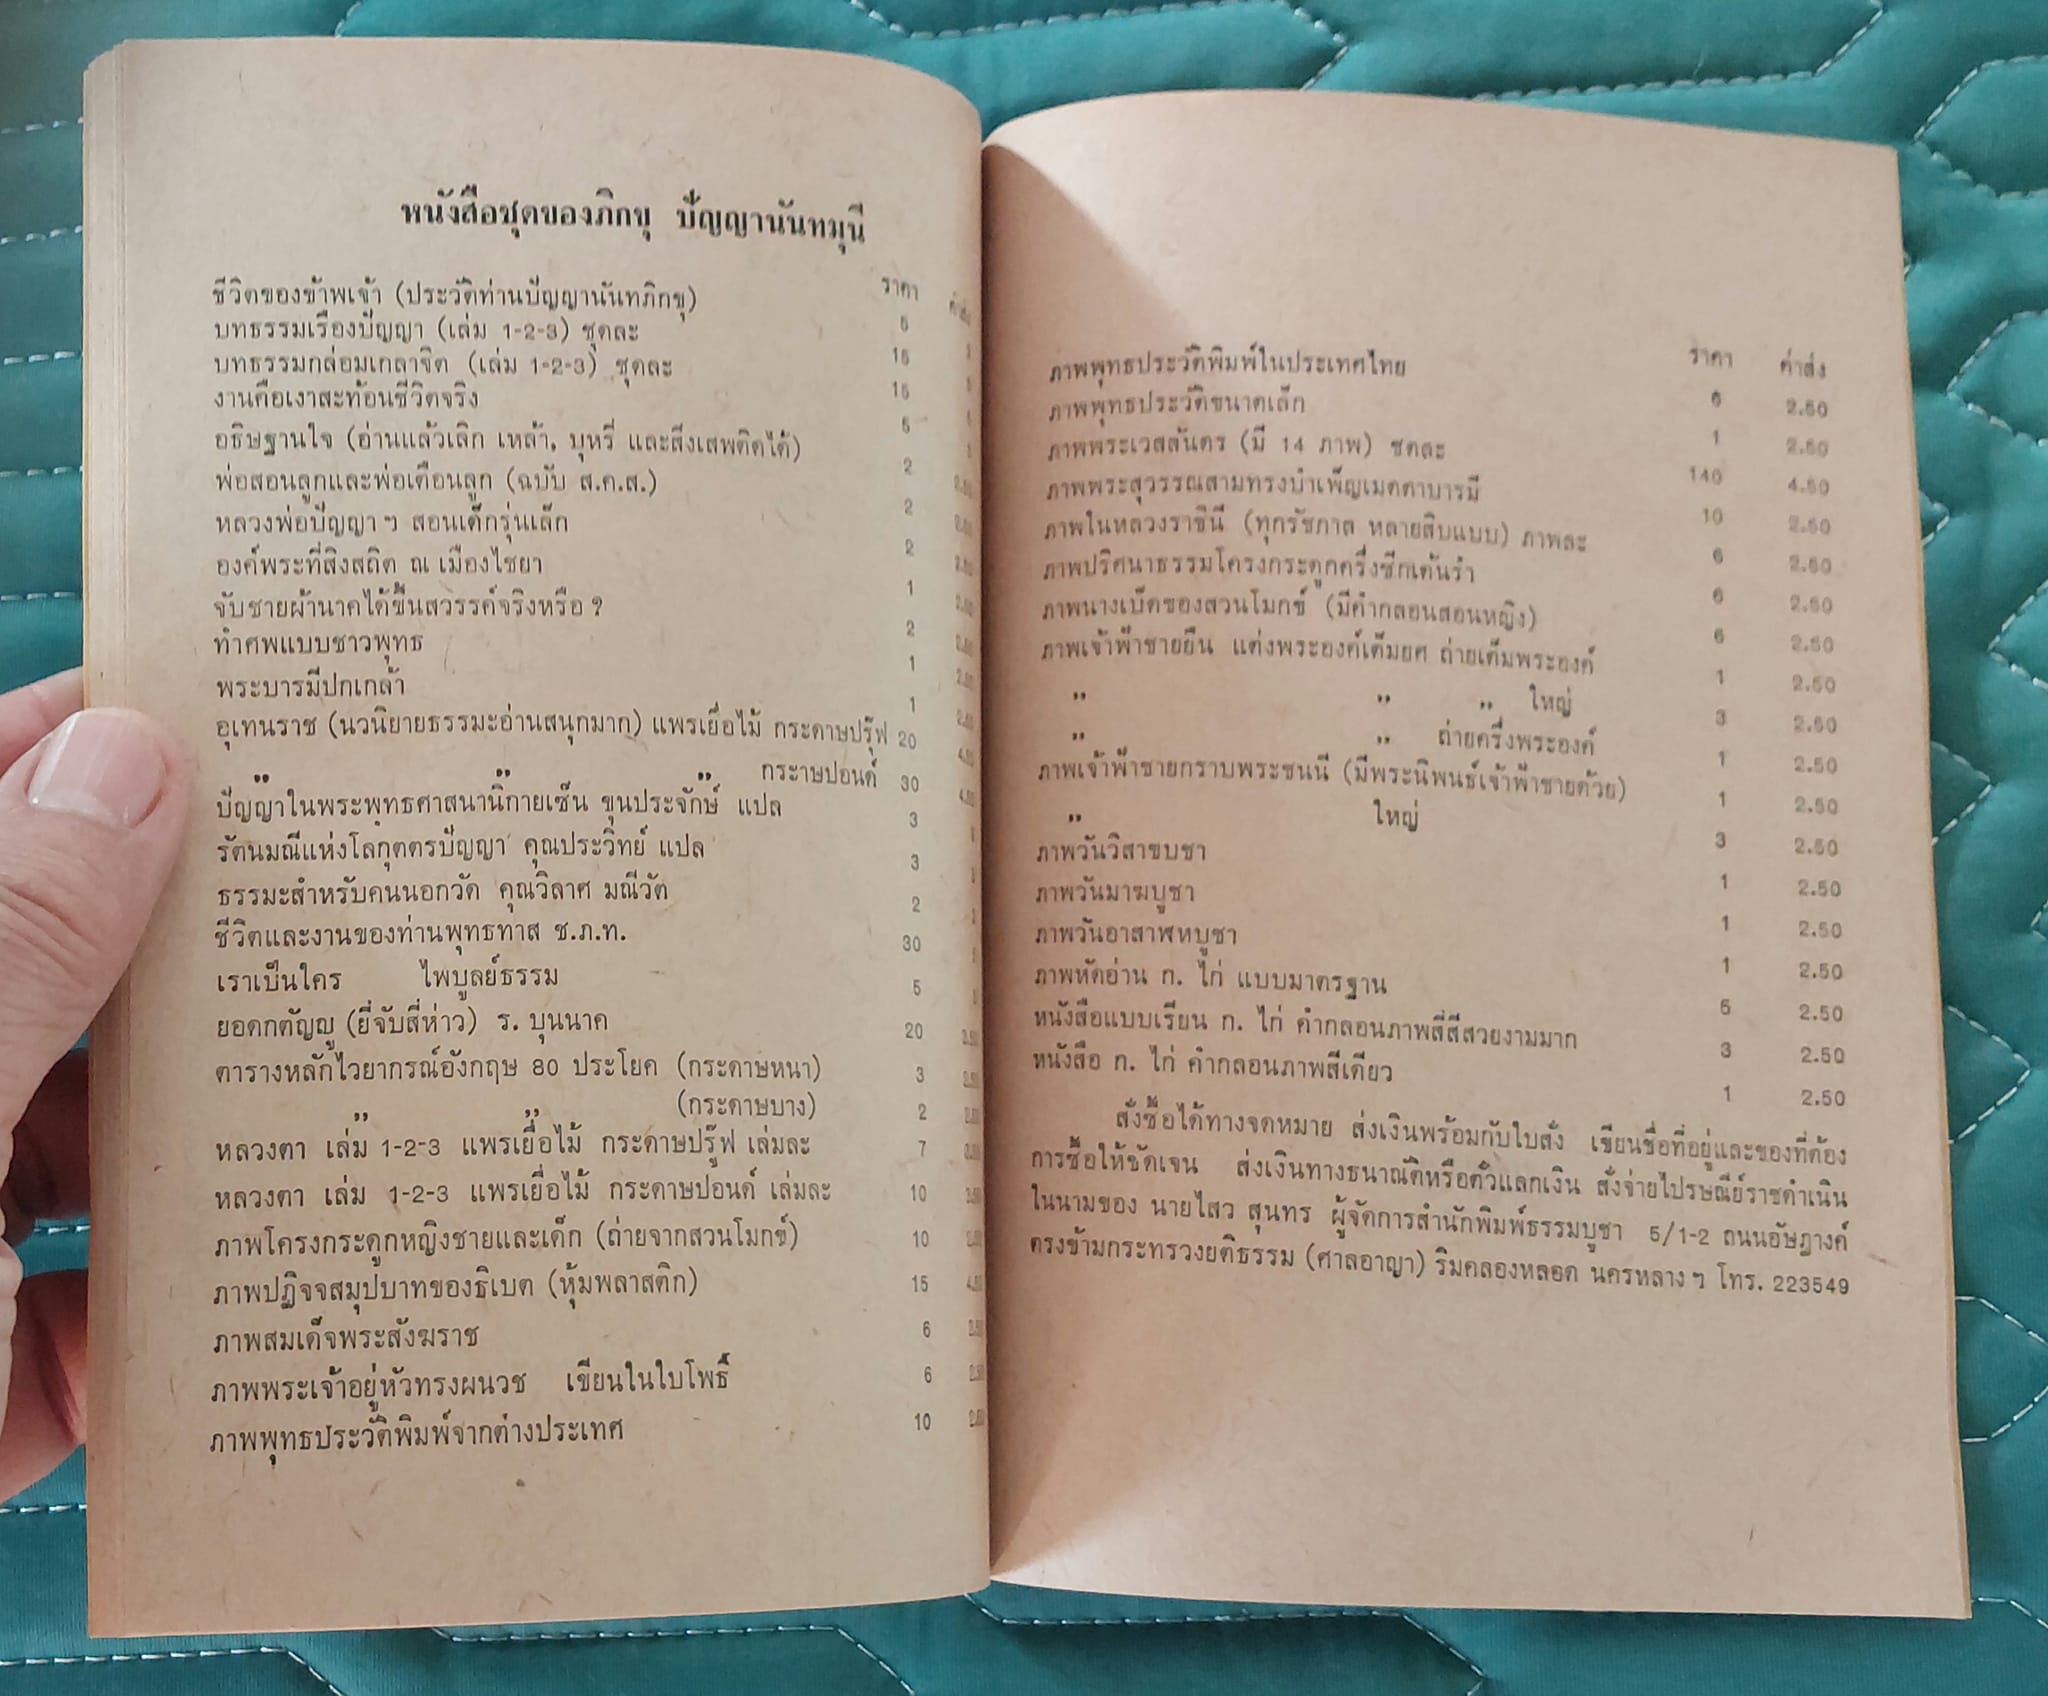 หนังสือชุดของภิกขุ ปัญญานันทมุนี
ราคา
ชีวิตของข้าพเจ้า (ประวัติท่านปัญญานันทภิกขุ) 5
บทธรรมเรืองปัญญา (เล่ม 1-2-3) ชุดละ 15
บทธรรมกล่อมเกลาจิต (เล่ม 1-2-3) ชุดละ 15
งานคือเงาสะท้อนชีวิตจริง 5
อธิษฐานใจ (อ่านแล้วเลิก เหล้า, บุหรี่ และสิ่งเสพติดได้) 2
พ่อสอนลูกและพ่อเตือนลูก (ฉบับ ส.ค.ส.) 2
หลวงพ่อปัญญาฯ สอนเด็กรุ่นเล็ก 2
องค์พระที่สิงสถิต ณ เมืองไชยา 1
จับชายผ้านาคได้ขึ้นสวรรค์จริงหรือ ? 2
ทำศพแบบชาวพุทธ 1
พระบารมีปกเกล้า 1
อุเทนราช (นวนิยายธรรมะอ่านสนุกมาก) แพรเยื่อไม้ กระดาษปรู๊ฟ 20
" " " กระาษปอนด์ 30
ปัญญาในพระพุทธศาสนานิกายเซ็น ขุนประจักษ์ แปล 3
รัตนมณีแห่งโลกุตตรปัญญา คุณประวิทย์ แปล 3
ธรรมะสำหรับคนนอกวัด คุณวิลาศ มณีวัต 2
ชีวิตและงานของท่านพุทธทาส ช.ภ.ท. 30
เราเป็นใคร ไพบูลย์ธรรม 5
ยอดกตัญญู (ยี่จับสี่ห่าว) ร. บุนนาค 20
ตารางหลักไวยากรณ์อังกฤษ 80 ประโยค (กระดาษหนา) 3
" " (กระดาษบาง) 2
หลวงตา เล่ม 1-2-3 แพรเยื่อไม้ กระดาษปรู๊ฟ เล่มละ 7
หลวงตา เล่ม 1-2-3 แพรเยื่อไม้ กระดาษปอนด์ เล่มละ 10
ภาพโครงกระดูกหญิงชายและเด็ก (ถ่ายจากสวนโมกข์) 10
ภาพปฏิจจสมุปบาทของธิเบต (หุ้มพลาสติก) 15
ภาพสมเด็จพระสังฆราช 6
ภาพพระเจ้าอยู่หัวทรงผนวช เขียนในใบโพธิ์ 6
ภาพพุทธประวัติพิมพ์จากต่างประเทศ 10
ราคา ค่าส่ง
ภาพพุทธประวัติพิมพ์ในประเทศไทย 6 2.50
ภาพพุทธประวัติขนาดเล็ก 1 2.50
ภาพพระเวสสันดร (มี 14 ภาพ) ชดละ 140 4.50
ภาพพระสุวรรณสามทรงบำเพ็ญเมตตาบารมี 10 2.50
ภาพในหลวงราชินี (ทุกรัชกาล หลายสิบแบบ) ภาพละ 6 2.50
ภาพปริศนาธรรมโครงกระดูกครึ่งซีกเต้นรำ 6 2.50
ภาพนางเบ็ดของสวนโมกข์ (มีคำกลอนสอนหญิง) 6 2.50
ภาพเจ้าฟ้าชายยืน แต่งพระองค์เต็มยศ ถ่ายเต็มพระองค์ 1 2.50
" " " ใหญ่ 3 2.50
" " ถ่ายครึ่งพระองค์ 1 2.50
ภาพเจ้าฟ้าชายกราบพระชนนี (มีพระนิพนธ์เจ้าฟ้าชายด้วย) 1 2.50
" ใหญ่ 3 2.50
ภาพวันวิสาขบชา 1 2.50
ภาพวันมาฆบูชา 1 2.50
ภาพวันอาสาฬหบูชา 1 2.50
ภาพหัดอ่าน ก. ไก่ แบบมาตรฐาน 6 2.50
หนังสือแบบเรียน ก. ไก่ คำกลอนภาพสี่สีสวยงามมาก 3 2.50
หนังสือ ก. ไก่ คำกลอนภาพสีเดียว 1 2.50
สั่งซื้อได้ทางจดหมาย ส่งเงินพร้อมกับใบสั่ง เขียนชื่อที่อยู่และของที่ต้อง
การซื้อให้ชัดเจน ส่งเงินทางธนาณัติหรือตั๋วแลกเงิน สั่งจ่ายไปรษณีย์ราชดำเนิน
ในนามของ นายไสว สุนทร ผู้จัดการสำนักพิมพ์ธรรมบูชา 5/1-2 ถนนอัษฎางค์
ตรงข้ามกระทรวงยุติธรรม (ศาลอาญา) ริมคลองหลอด นครหลางฯ โทร. 223549